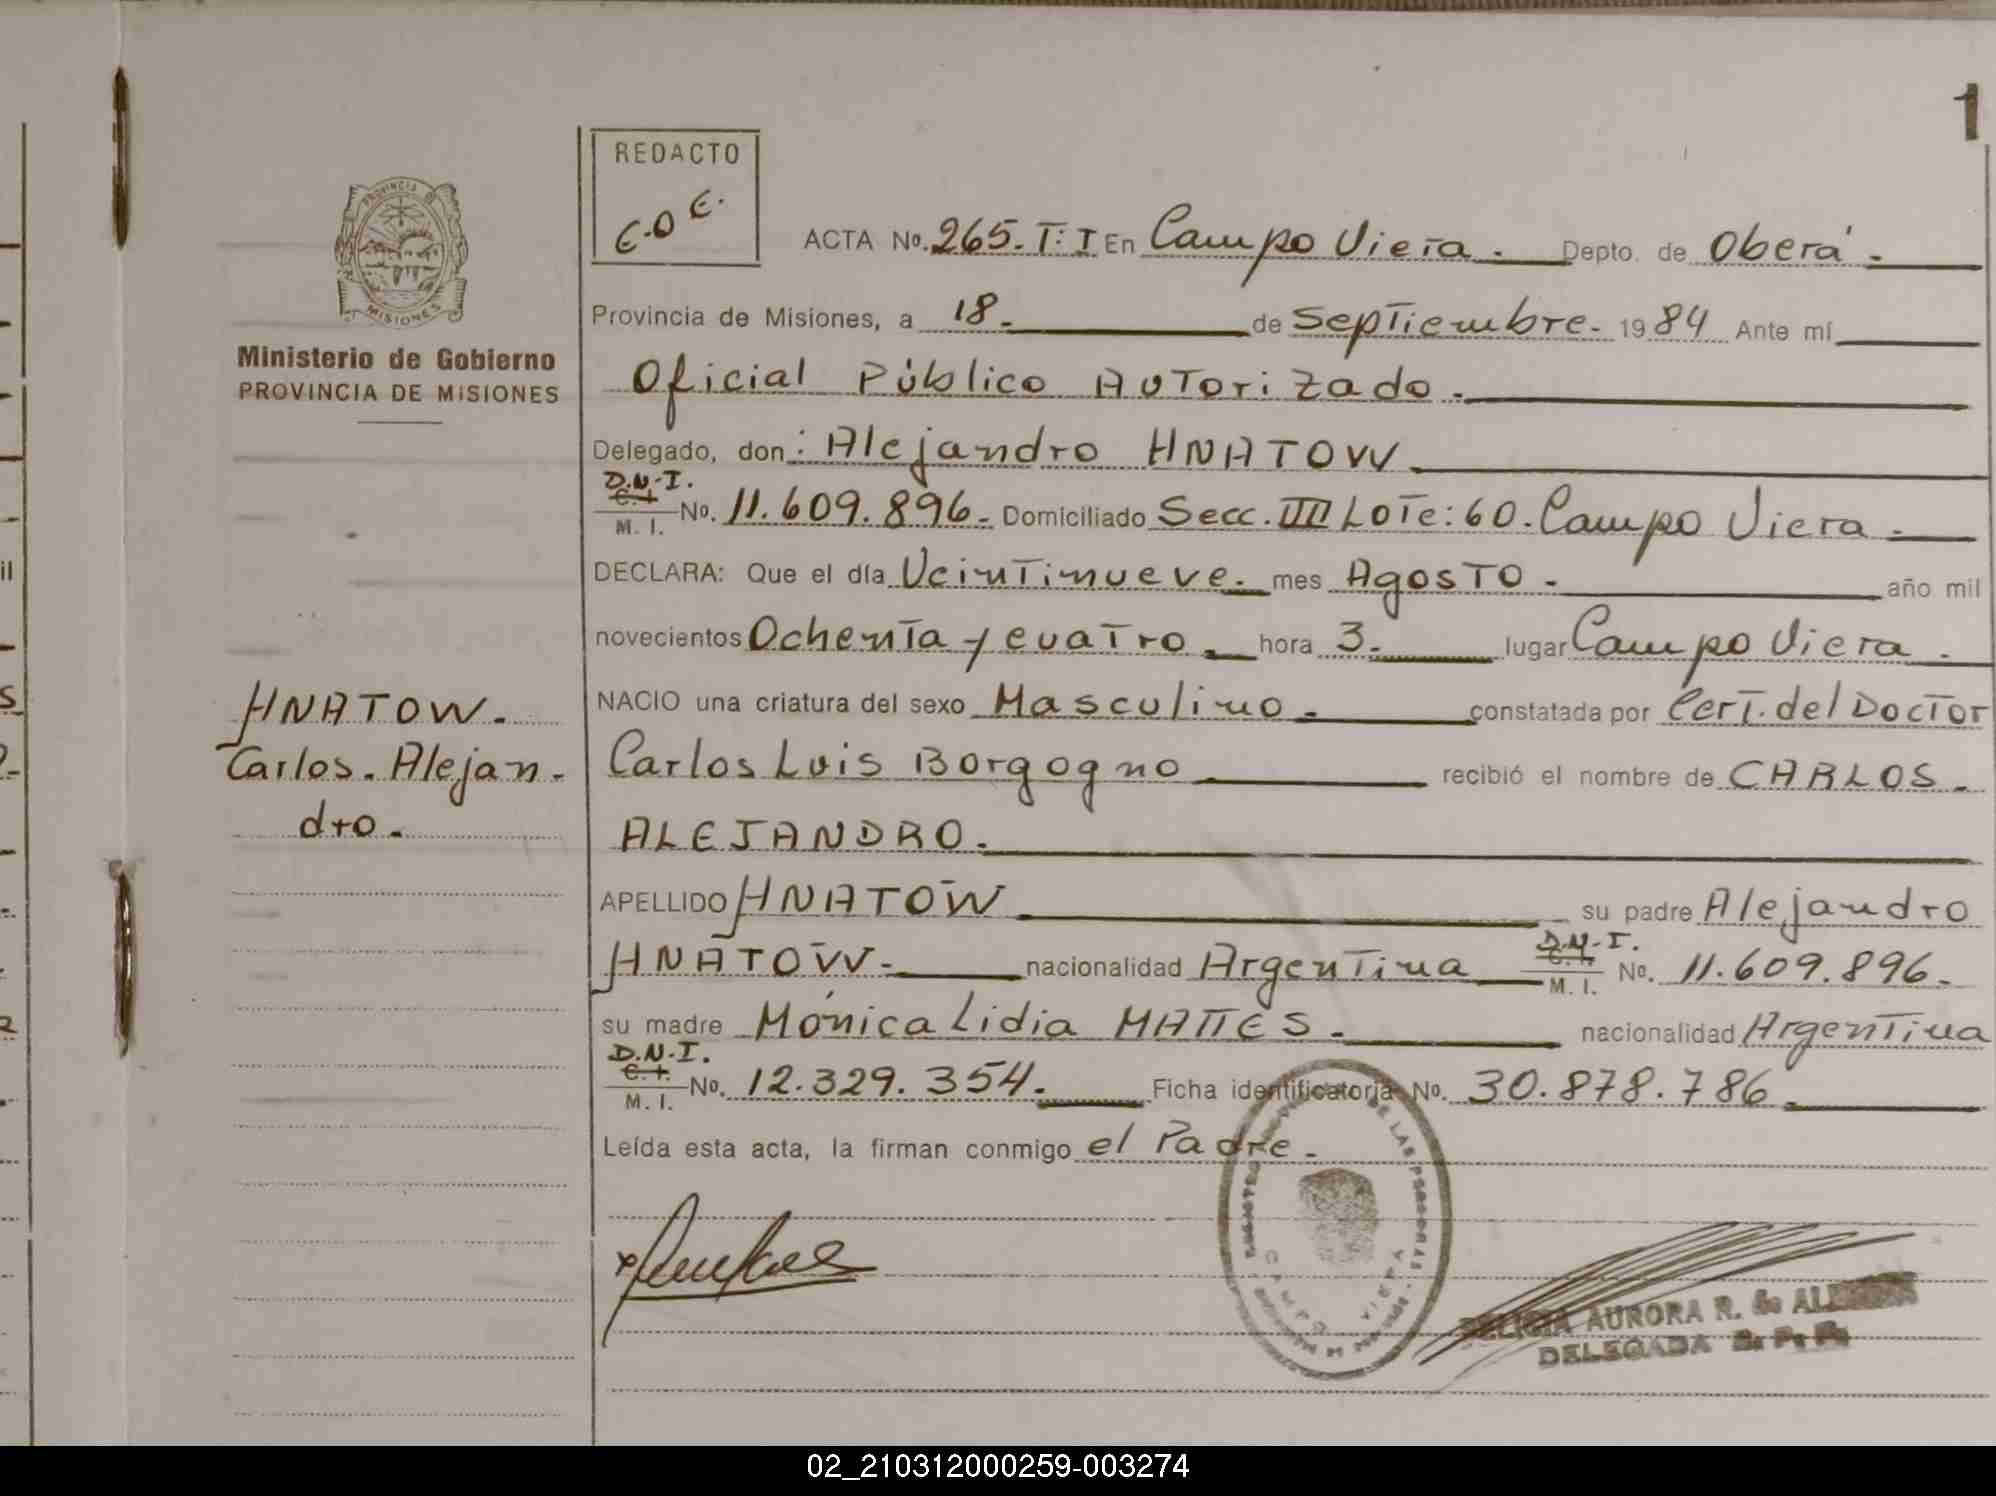 1
REDACTO
E.O E.
PROVINCIA D
MISIONES
Ministerio de Gobierno
PROVINCIA DE MISIONES
ACTA No. 265. T: I En Campo Viera. Depto. de Oberá.
Provincia de Misiones, a 18. de Septiembre. 1984 Ante mí
Oficial Público Autorizado.
Delegado, don: Alejandro HNATOW
D.N.I.
C. I.
M. I. No. 11.609.896. Domiciliado Secc. III Lote: 60. Campo Viera.
DECLARA: Que el día Veintinueve. mes Agosto. año mil
novecientos Ochenta y cuatro. hora 3. lugar Campo Viera.
NACIO una criatura del sexo Masculino. constatada por Cert. del Doctor
Carlos Luis Borgogno recibió el nombre de CARLOS.
ALEJANDRO.
HNATOW.
Carlos. Alejan.
dro.
APELLIDO HNATOW su padre Alejandro
HNATOW. nacionalidad Argentina D.N.I. C. I. M. I. No. 11.609.896.
su madre Mónica Lidia MATTES. nacionalidad Argentina
D.N.I.
C. I.
M. I. No. 12.329.354. Ficha identificatoria No. 30.878.786.
Leída esta acta, la firman conmigo el Padre.
DE LAS PERSONAS
CAMPO VIERA
AURORA R. de
DELEGADA R. P. P.
02_210312000259-003274